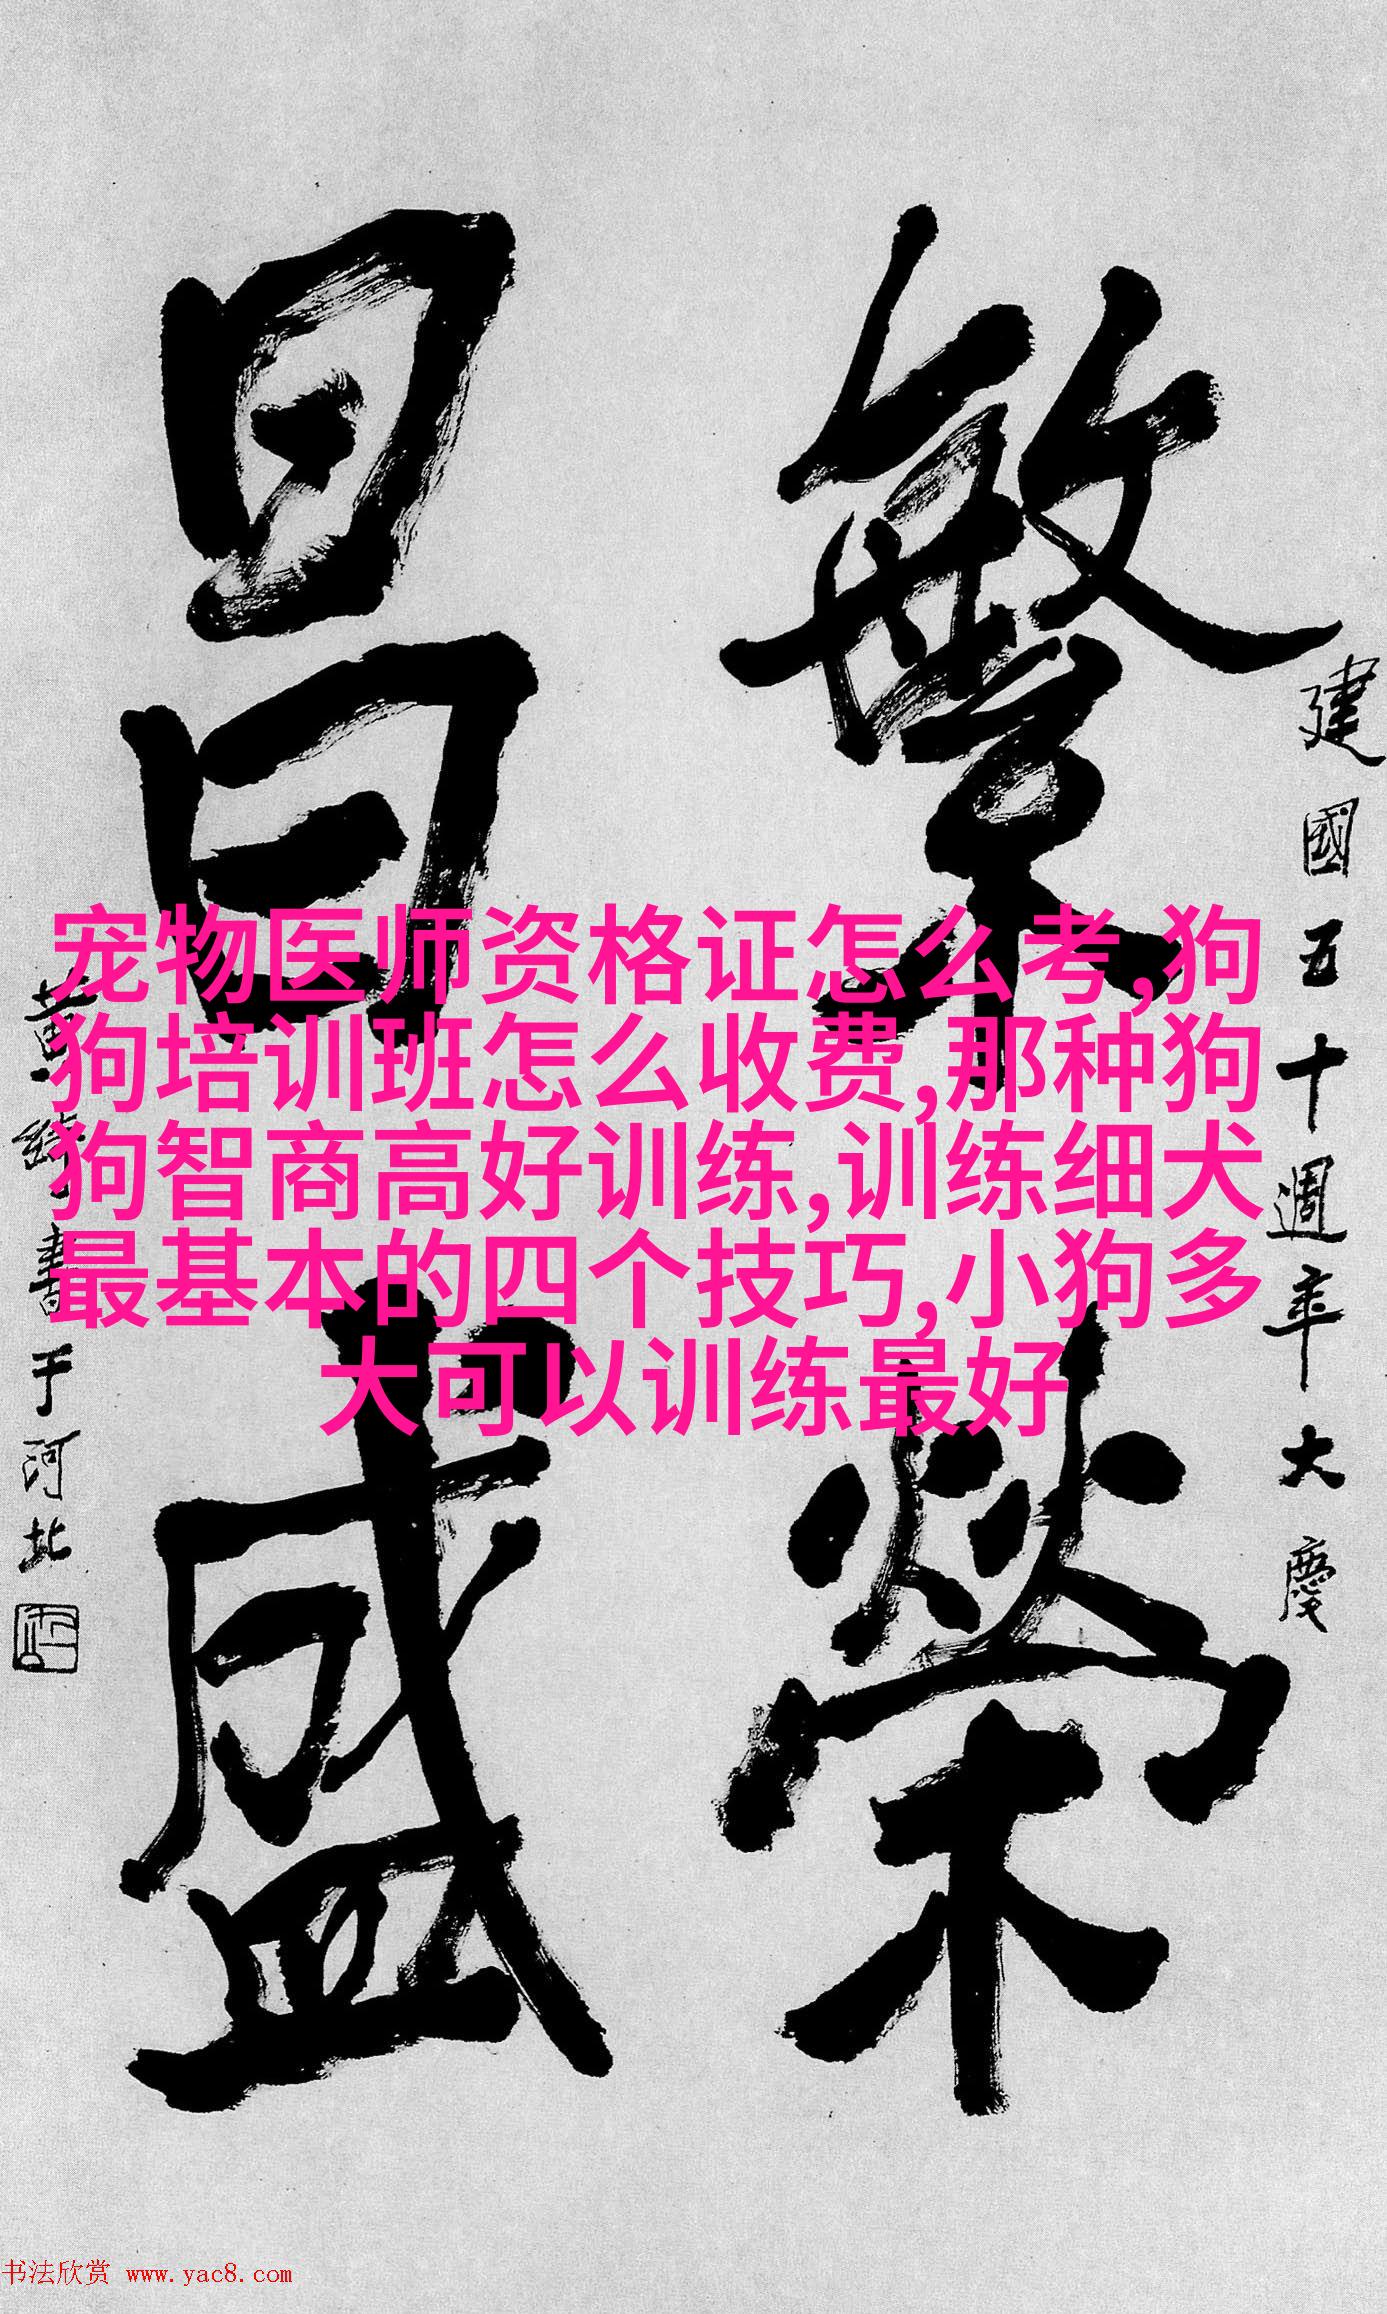 建國五十週年大慶
繁榮
昌盛
黄綺書于河北
宠物医师资格证怎么考,狗
狗培训班怎么收费,那种狗
狗智商高好训练,训练细犬
最基本的四个技巧,小狗多
大可以训练最好
书法欣赏 www.yac8.com